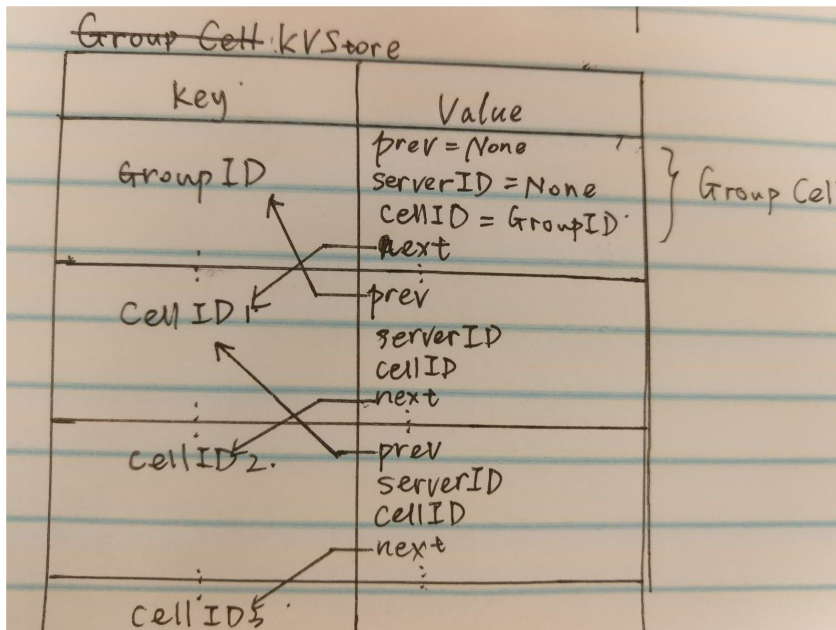 Group Cell KVStore
Key Value
GroupID
prev = None
serverID = None
cellID = GroupID
next
} Group Cel
Cell ID 1
prev
serverID
cellID
next
cellID 2.
prev
serverID
cellID
next
cellID